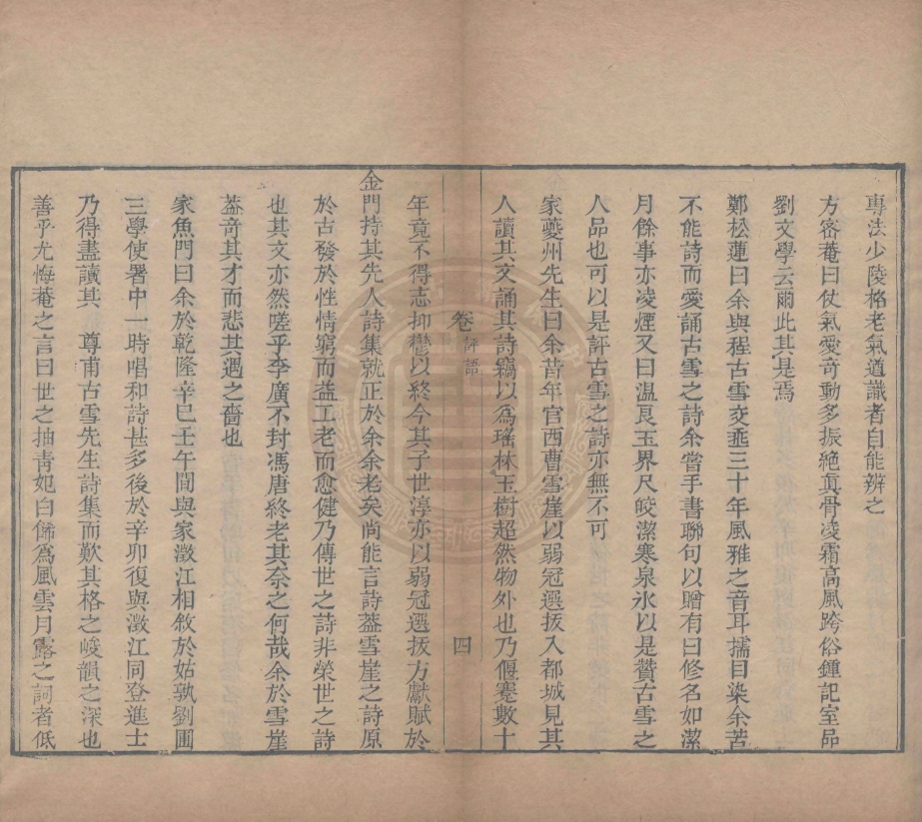 專法少陵格老氣遒識者自能辨之
方密菴曰仗氣愛奇動多振絶真骨凌霜高風跨俗鍾記室品
劉文學云爾此其是焉
鄭松蓮曰余與程古雪交垂三十年風雅之音耳擩目染余苦
不能詩而愛誦古雪之詩余嘗手書聯句以贈有曰修名如潔
月餘事亦凌煙又曰温良玉界尺皎潔寒泉氷以是贊古雪之
人品也可以是評古雪之詩亦無不可
家夔州先生曰余昔年官西曹雪崖以弱冠選拔入都城見其
人讀其文誦其詩竊以爲瑤林玉樹超然物外也乃偃蹇數十
卷 評語 四
年竟不得志抑鬱以終今其子世淳亦以弱冠選拔方獻賦於
金門持其先人詩集就正於余余老矣尚能言詩葢雪崖之詩原
於古發於性情窮而益工老而愈健乃傳世之詩非榮世之詩
也其文亦然嗟乎李廣不封馮唐終老其奈之何哉余於雪崖
葢奇其才而悲其遇之嗇也
家魚門曰余於乾隆辛巳壬午間與家澂江相敘於姑孰劉圃
三學使署中一時唱和詩甚多後於辛卯復與澂江同登進士
乃得盡讀其 尊甫古雪先生詩集而歎其格之峻韻之深也
善乎尤悔菴之言曰世之抽青妃白餙爲風雲月露之詞者低